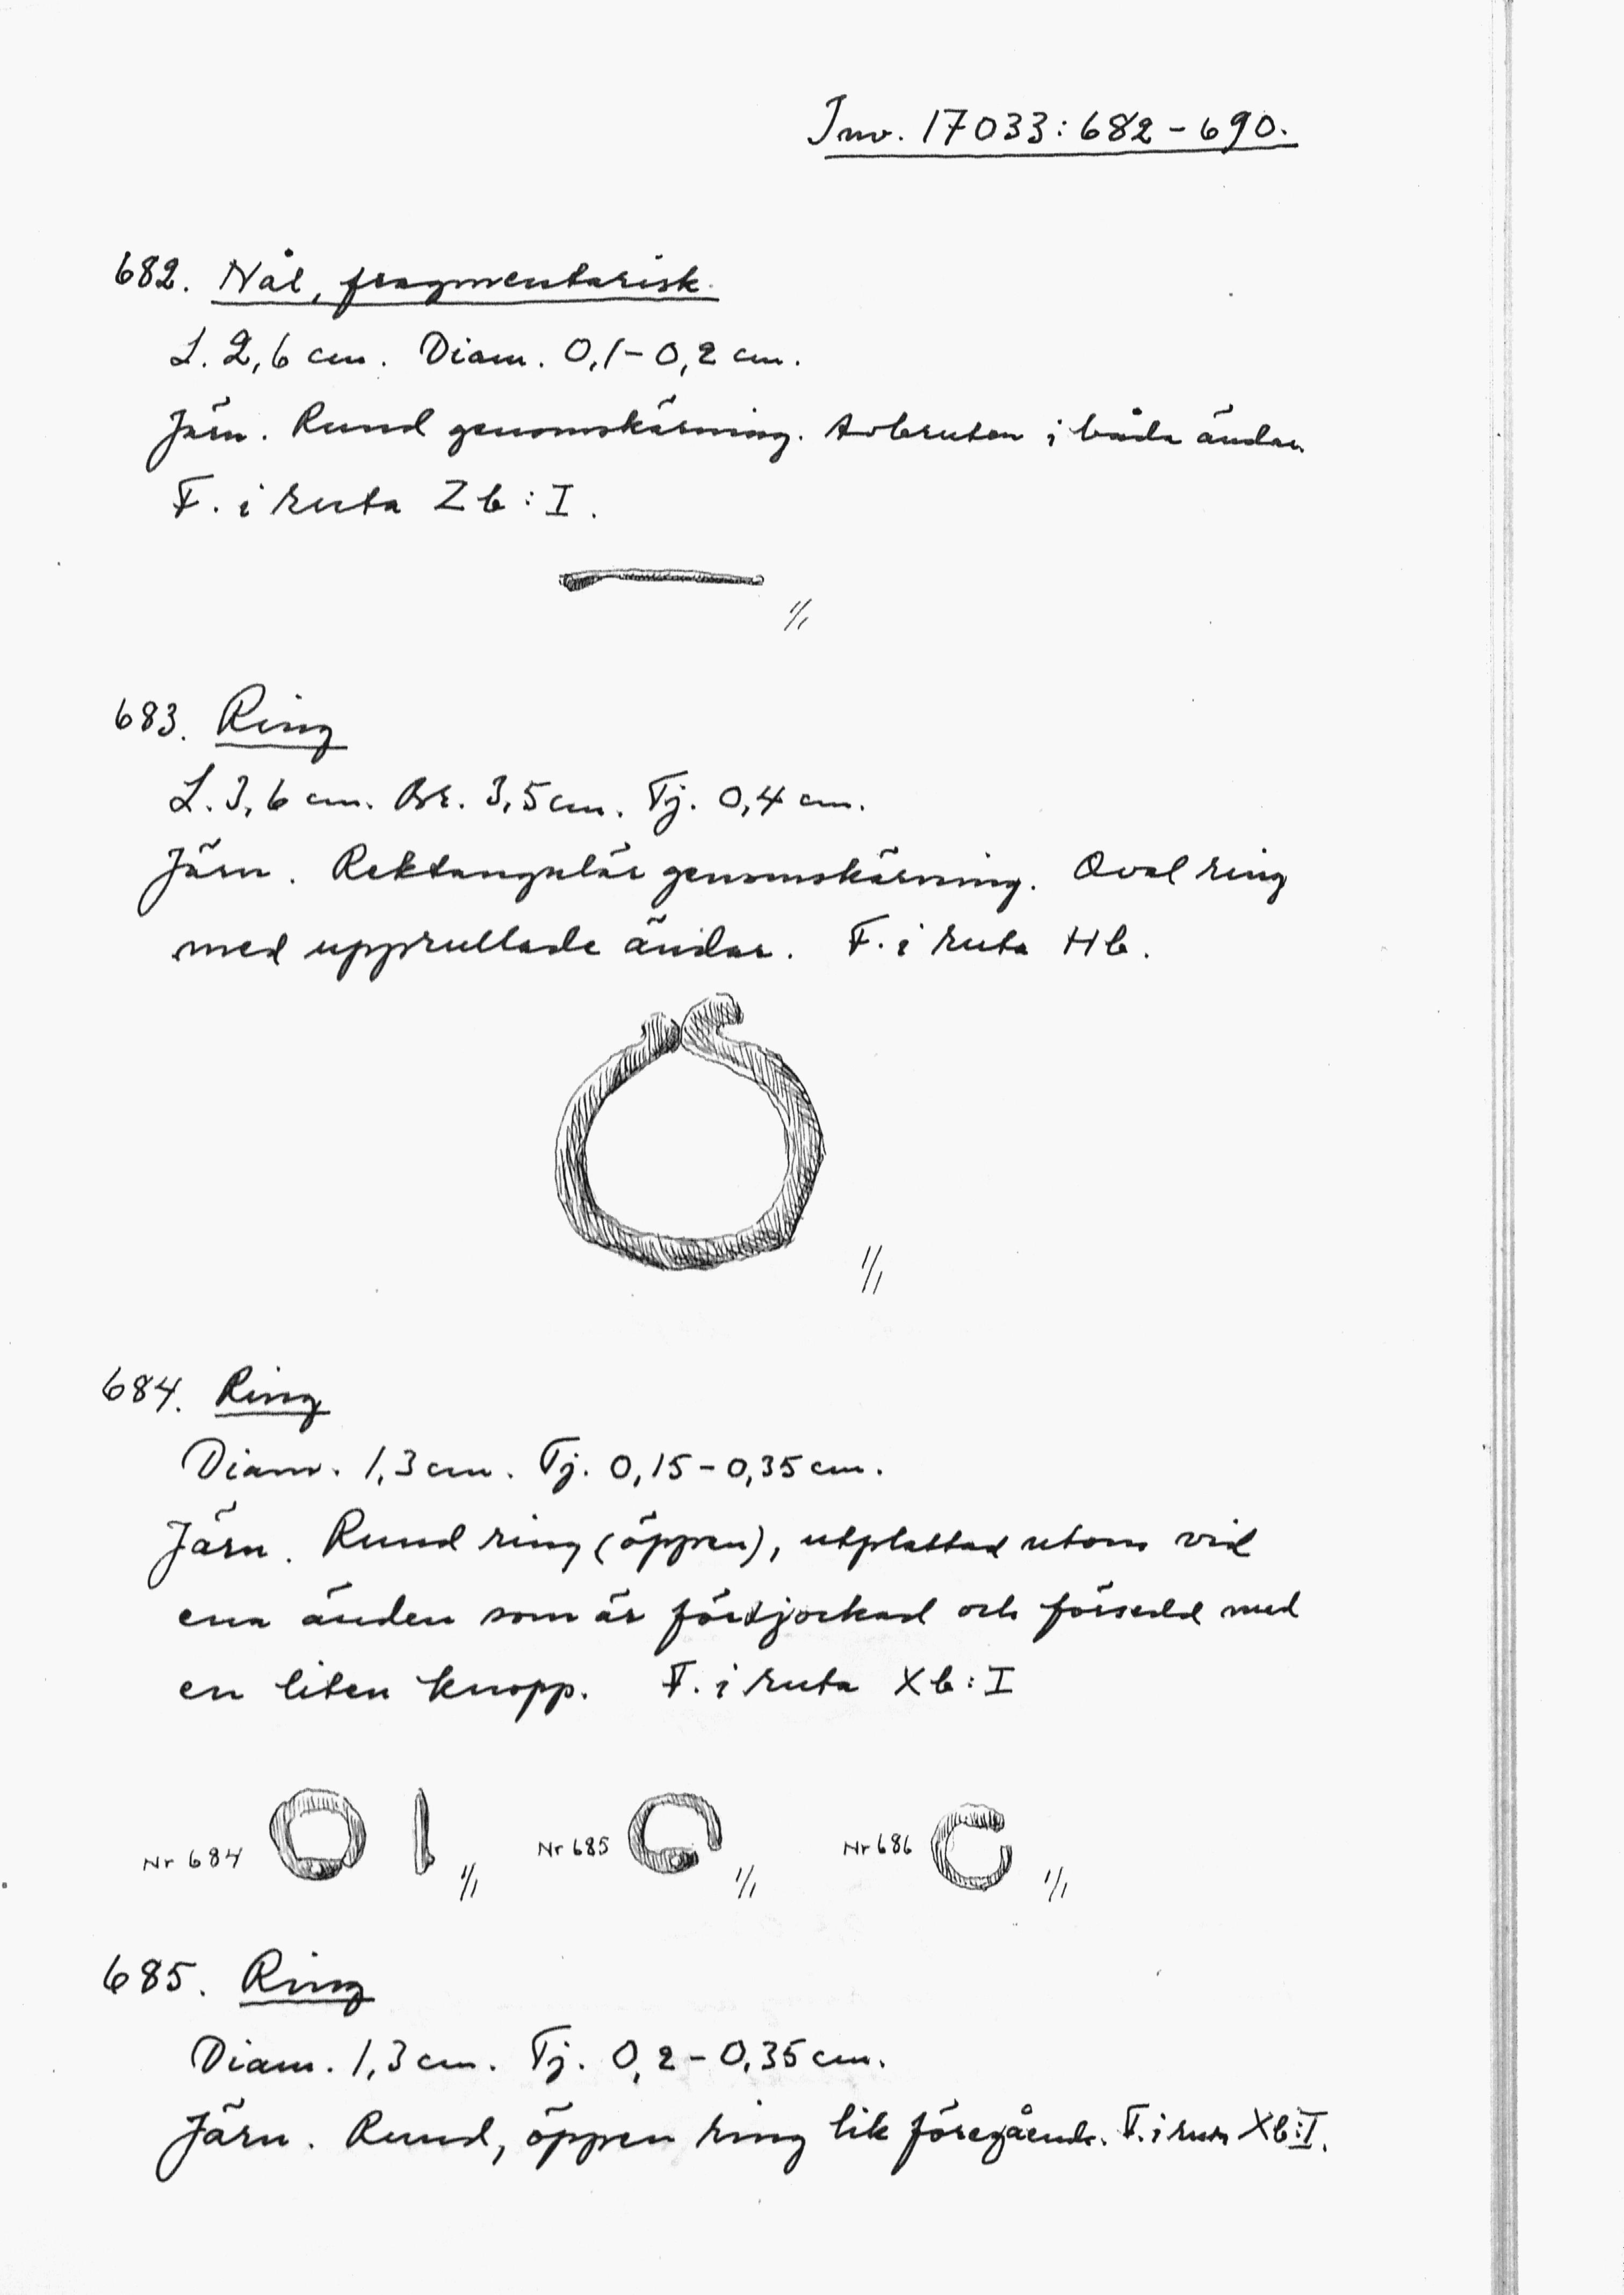 Inv. 17033:682-690.
682. Nål, fragmentarisk.
L. 2,6 cm. Diam. 0,1-0,2 cm.
Järn. Rund genomskärning. Avbruten i båda ändar.
F. i ruta Zb:I.
1/1
683. Ring
L. 3,6 cm. Br. 3,5 cm. Tj. 0,4 cm.
Järn. Rektangulär genomskärning. Oval ring
med upprullade ändar. F. i ruta Hb.
1/1
684. Ring
Diam. 1,3 cm. Tj. 0,15-0,35 cm.
Järn. Rund ring (öppen), utplattad utom vid
ena änden som är förtjockad och försedd med
en liten knopp. F. i ruta Xb:I
Nr 684 1/1 Nr 685 1/1 Nr 686 1/1
685. Ring
Diam. 1,3 cm. Tj. 0,2-0,35 cm.
Järn. Rund, öppen ring lik föregående. F. i ruta Xb:I.